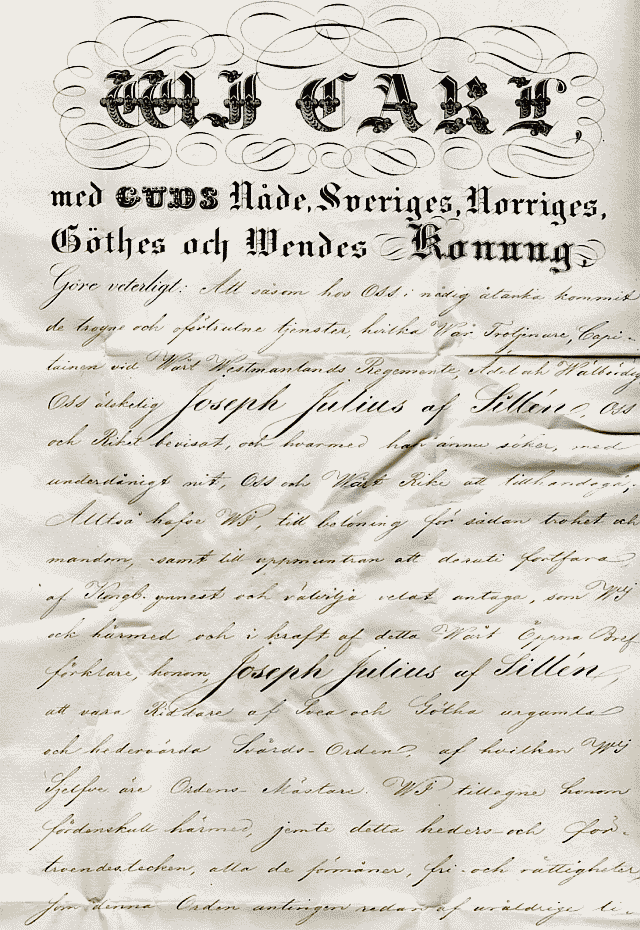 WJ CARL,
med GUDS Nåde, Sveriges, Norriges,
Göthes och Wendes Konung,
Göre veterligt: Att såsom hos Oss i nådig åtanka kommit
de trogne och oförtrutne tjenster, hvilka Wår Trotjenare, Capi-
tainen vid Wårt Westmanlands Regemente, Adel och Wälbördig
Oss älskelig Joseph Julius af Sillén, Oss
och Riket bevisat, och hvarmed han ännu söker, med
underdånigt nit, Oss och Wårt Rike att tillhandagå;
Alltså hafve WJ, till belöning för sådan trohet och
mandom, samt till uppmuntran att deruti fortfara,
af Kongl. ynnest och välvilja velat antaga, som WJ
ock härmed och i kraft af detta Wårt Öppna Bref
förklare, honom, Joseph Julius af Sillén,
att vara Riddare af Svea och Götha urgamla
och hedervärda Svärds-Orden, af hvilken WJ
Sjelfve äre Ordens-Mästare. WJ tillegne honom
fördenskull härmed, jemte detta heders- och för-
troendetecken, alla de förmåner, fri- och rättigheter,
som denna Orden antingen redan af uråldrige ti-